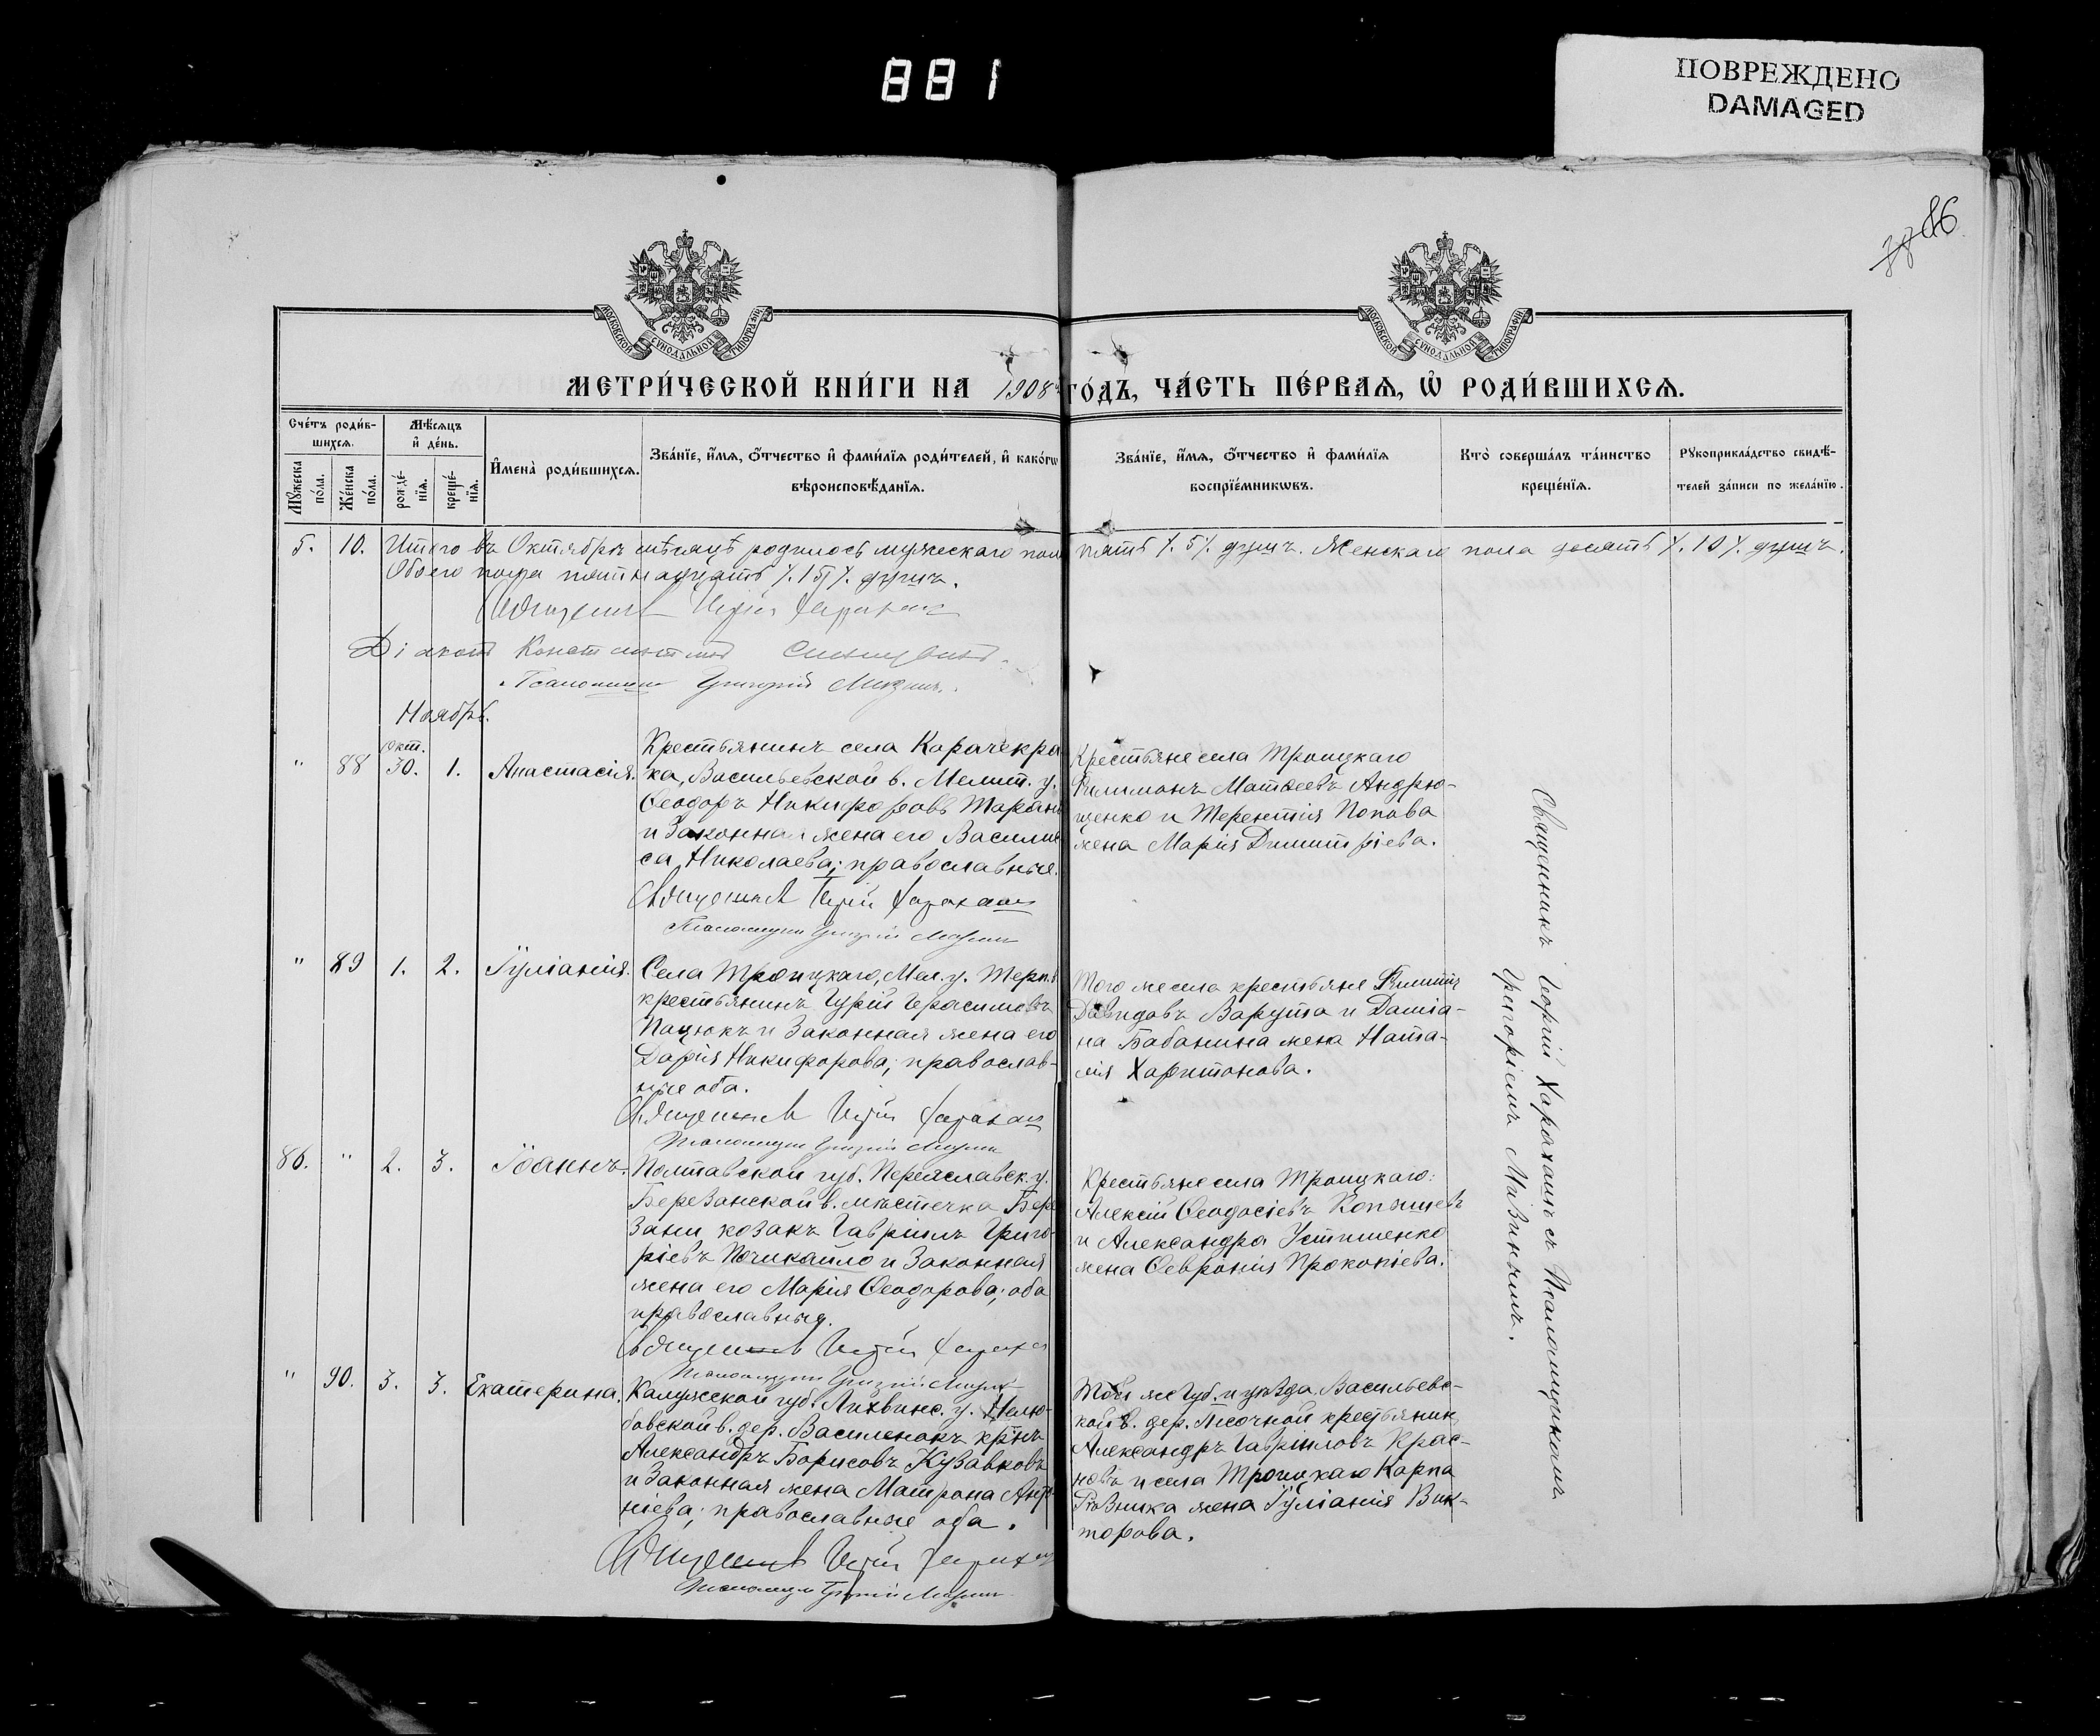 881
ПОВРЕЖДЕНО
DAMAGED
86
МОСКОВСКОЙ СУНОДАЛЬНОЙ ТИПОГРАФІИ
МОСКОВСКОЙ СУНОДАЛЬНОЙ ТИПОГРАФІИ
МЕТРИ́ЧЕСКОЙ КНИ́ГИ НА 1908 ГО́ДЪ, ЧА́СТЬ ПЕ́РВАѦ, Ѡ҆ РОДИ́ВШИХСѦ.
Сче́тъ роди́в-
шихсѧ.
Мѣ́сѧцъ
и҆ де́нь.
Мꙋ́жеска
по́ла.
Же́нска
по́ла.
рожде́-
нїѧ.
креще́-
нїѧ.
И҆мена̀ роди́вшихсѧ.
Зва́нїе, и҆́мѧ, ѻ҆́тчество и҆ фами́лїѧ роди́телей, и҆ како́гѡ
вѣроисповѣ́данїѧ.
Зва́нїе, и҆́мѧ, ѻ҆́тчество и҆ фами́лїѧ
воспрїе́мникѡвъ.
Кто̀ соверша́лъ та́инство
креще́нїѧ.
Рꙋкоприкла́дство свидѣ́-
телей за́писи по жела́нїю.
5. 10. Итого въ Октябрѣ мѣсяцѣ родилось мужескаго пол пять /. 5 /. душъ. Женскаго пола десять /. 10 /. душъ.
Обоего пола пятнадцать /. 15 /. душъ.
Священникъ Георгій Харахашъ
Діаконъ Константинъ
Псаломщикъ Григорій Мазинъ.
Ноябрь.
" 88 Окт. 30. 1. Анастасія.
Крестьянинъ села Карачекра
ка, Васильевской в. Мелит. у.
Ѳеодоръ Никифоровъ Таран
и законная жена его Васили
са Николаева; православные.
Священникъ Георгій Харахашъ
Псаломщикъ Григорій Мазинъ
Крестьяне села Троицкаго
Филимонъ Матѳеевъ Андрю-
щенко и Терентія Попова
жена Марія Димитріева.
" 89 1. 2. Іуліанія.
Села Троицкаго, Мел. у. Терп.
крестьянинъ Гурій Герасимовъ
Пацюкъ и законная жена его
Дарія Никифорова; православ-
ные оба.
Священникъ Георгій Харахашъ
Псаломщикъ Григорій Мазинъ
Того же села крестьяне Филиппъ
Давидовъ Варута и Даміа-
на Бабанина жена Ната-
лія Харитонова.
86. " 2. 3. Іоаннъ.
Полтавской губ. Переяславск. у.
Березанской в. мѣстечка Бере
зани козакъ Гавріилъ Григо-
ріевъ Почикайло и законная
жена его Марія Ѳеодорова; оба
православныя.
Священникъ Георгій Харахаш
Псаломщикъ Григорій Мазинъ
Крестьяне села Троицкаго:
Алексій Ѳеодосіевъ Копишевъ
и Александра Устименко
жена Ѳевронія Прокопіева.
" 90. 3. 3. Екатерина.
Калужской губ. Лихвинс. у. Нелю-
бовской в. дер. Василенокъ кр̃нъ
Александръ Борисовъ Кузавковъ
и законная жена Матрона Анто
ніева; православные оба.
Священникъ Георгій Харахаш
Псаломщикъ Григорій Мазинъ
Той же губ. и уѣзда. Васильевс-
кой в. дер. Песочной крестьянин
Александръ Гавріиловъ Крас-
новъ и села Троицкаго Карпа
Ровника жена Іуліанія Вик-
торова.
Священникъ Георгій Харахашъ съ Псаломщикомъ
Григоріемъ Мазинымъ.